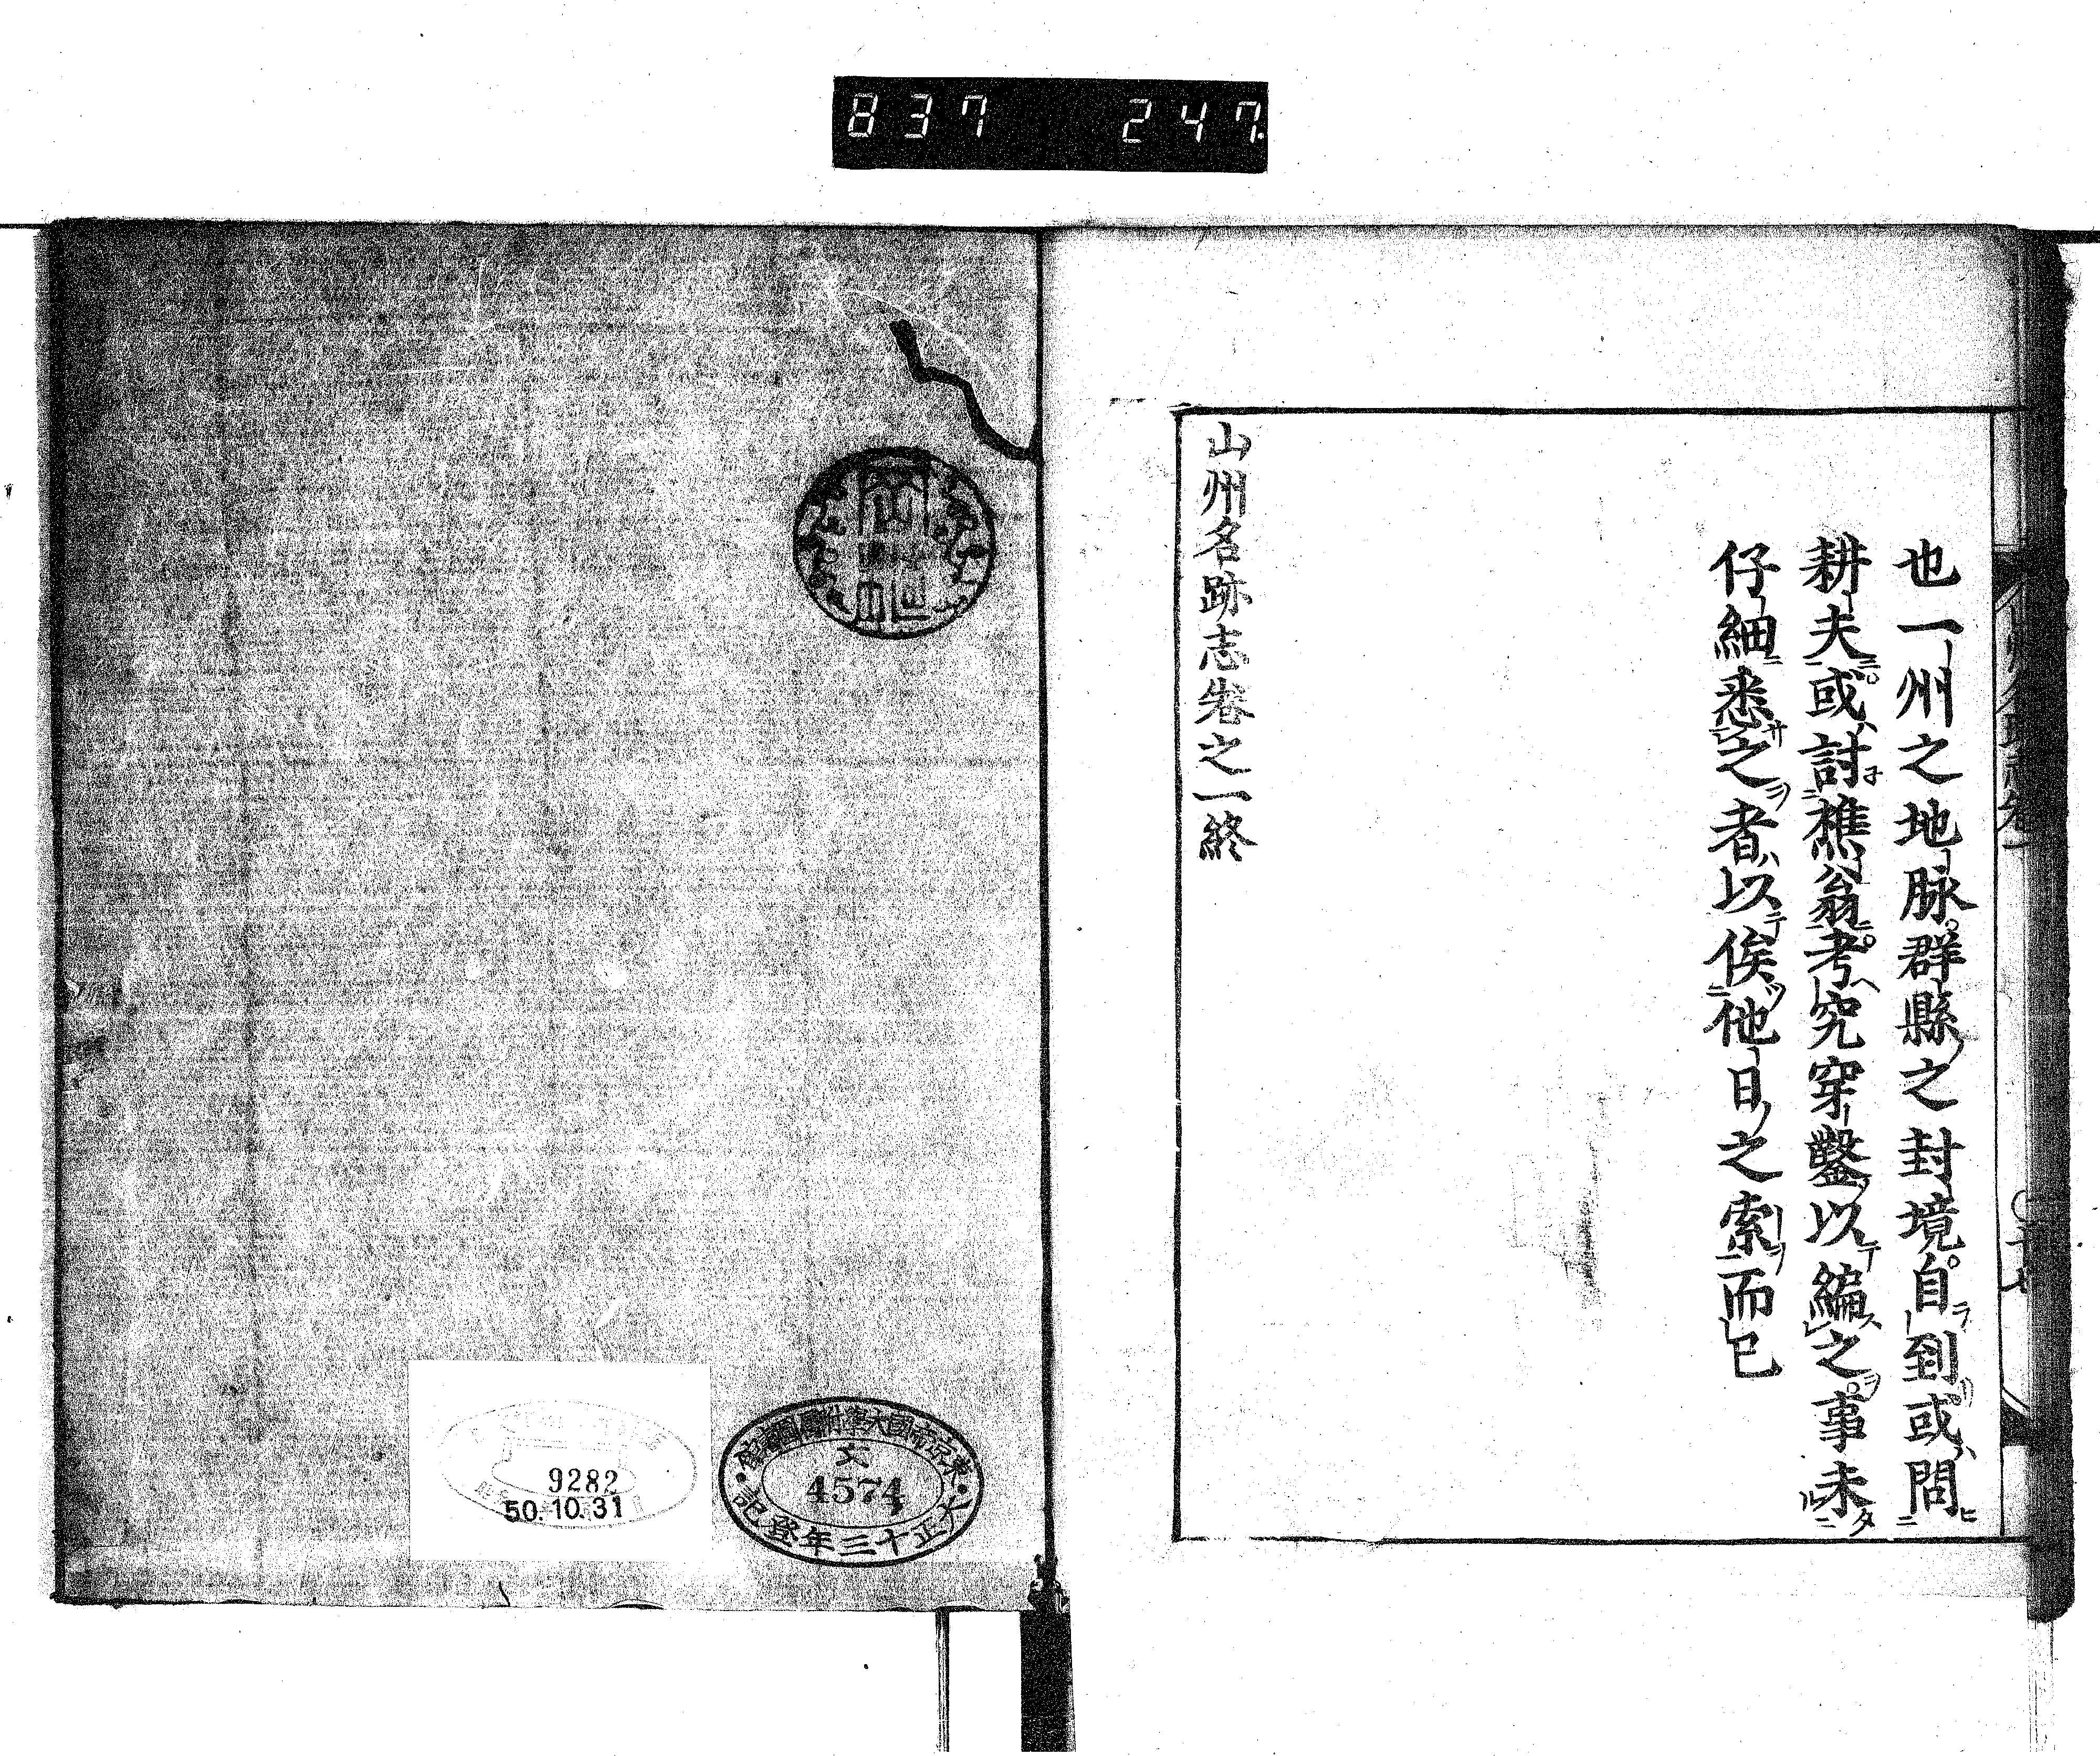 837 247.
也一州之地脉。群縣之封境。自到或問
耕夫或討樵翁考究穿鑿以編之事未
仔細悉之者以俟他日之索而已
山州名跡志卷之一終
東京帝國大學附屬圖書館
文
4574
大正十三年登記
9282
50.10.31